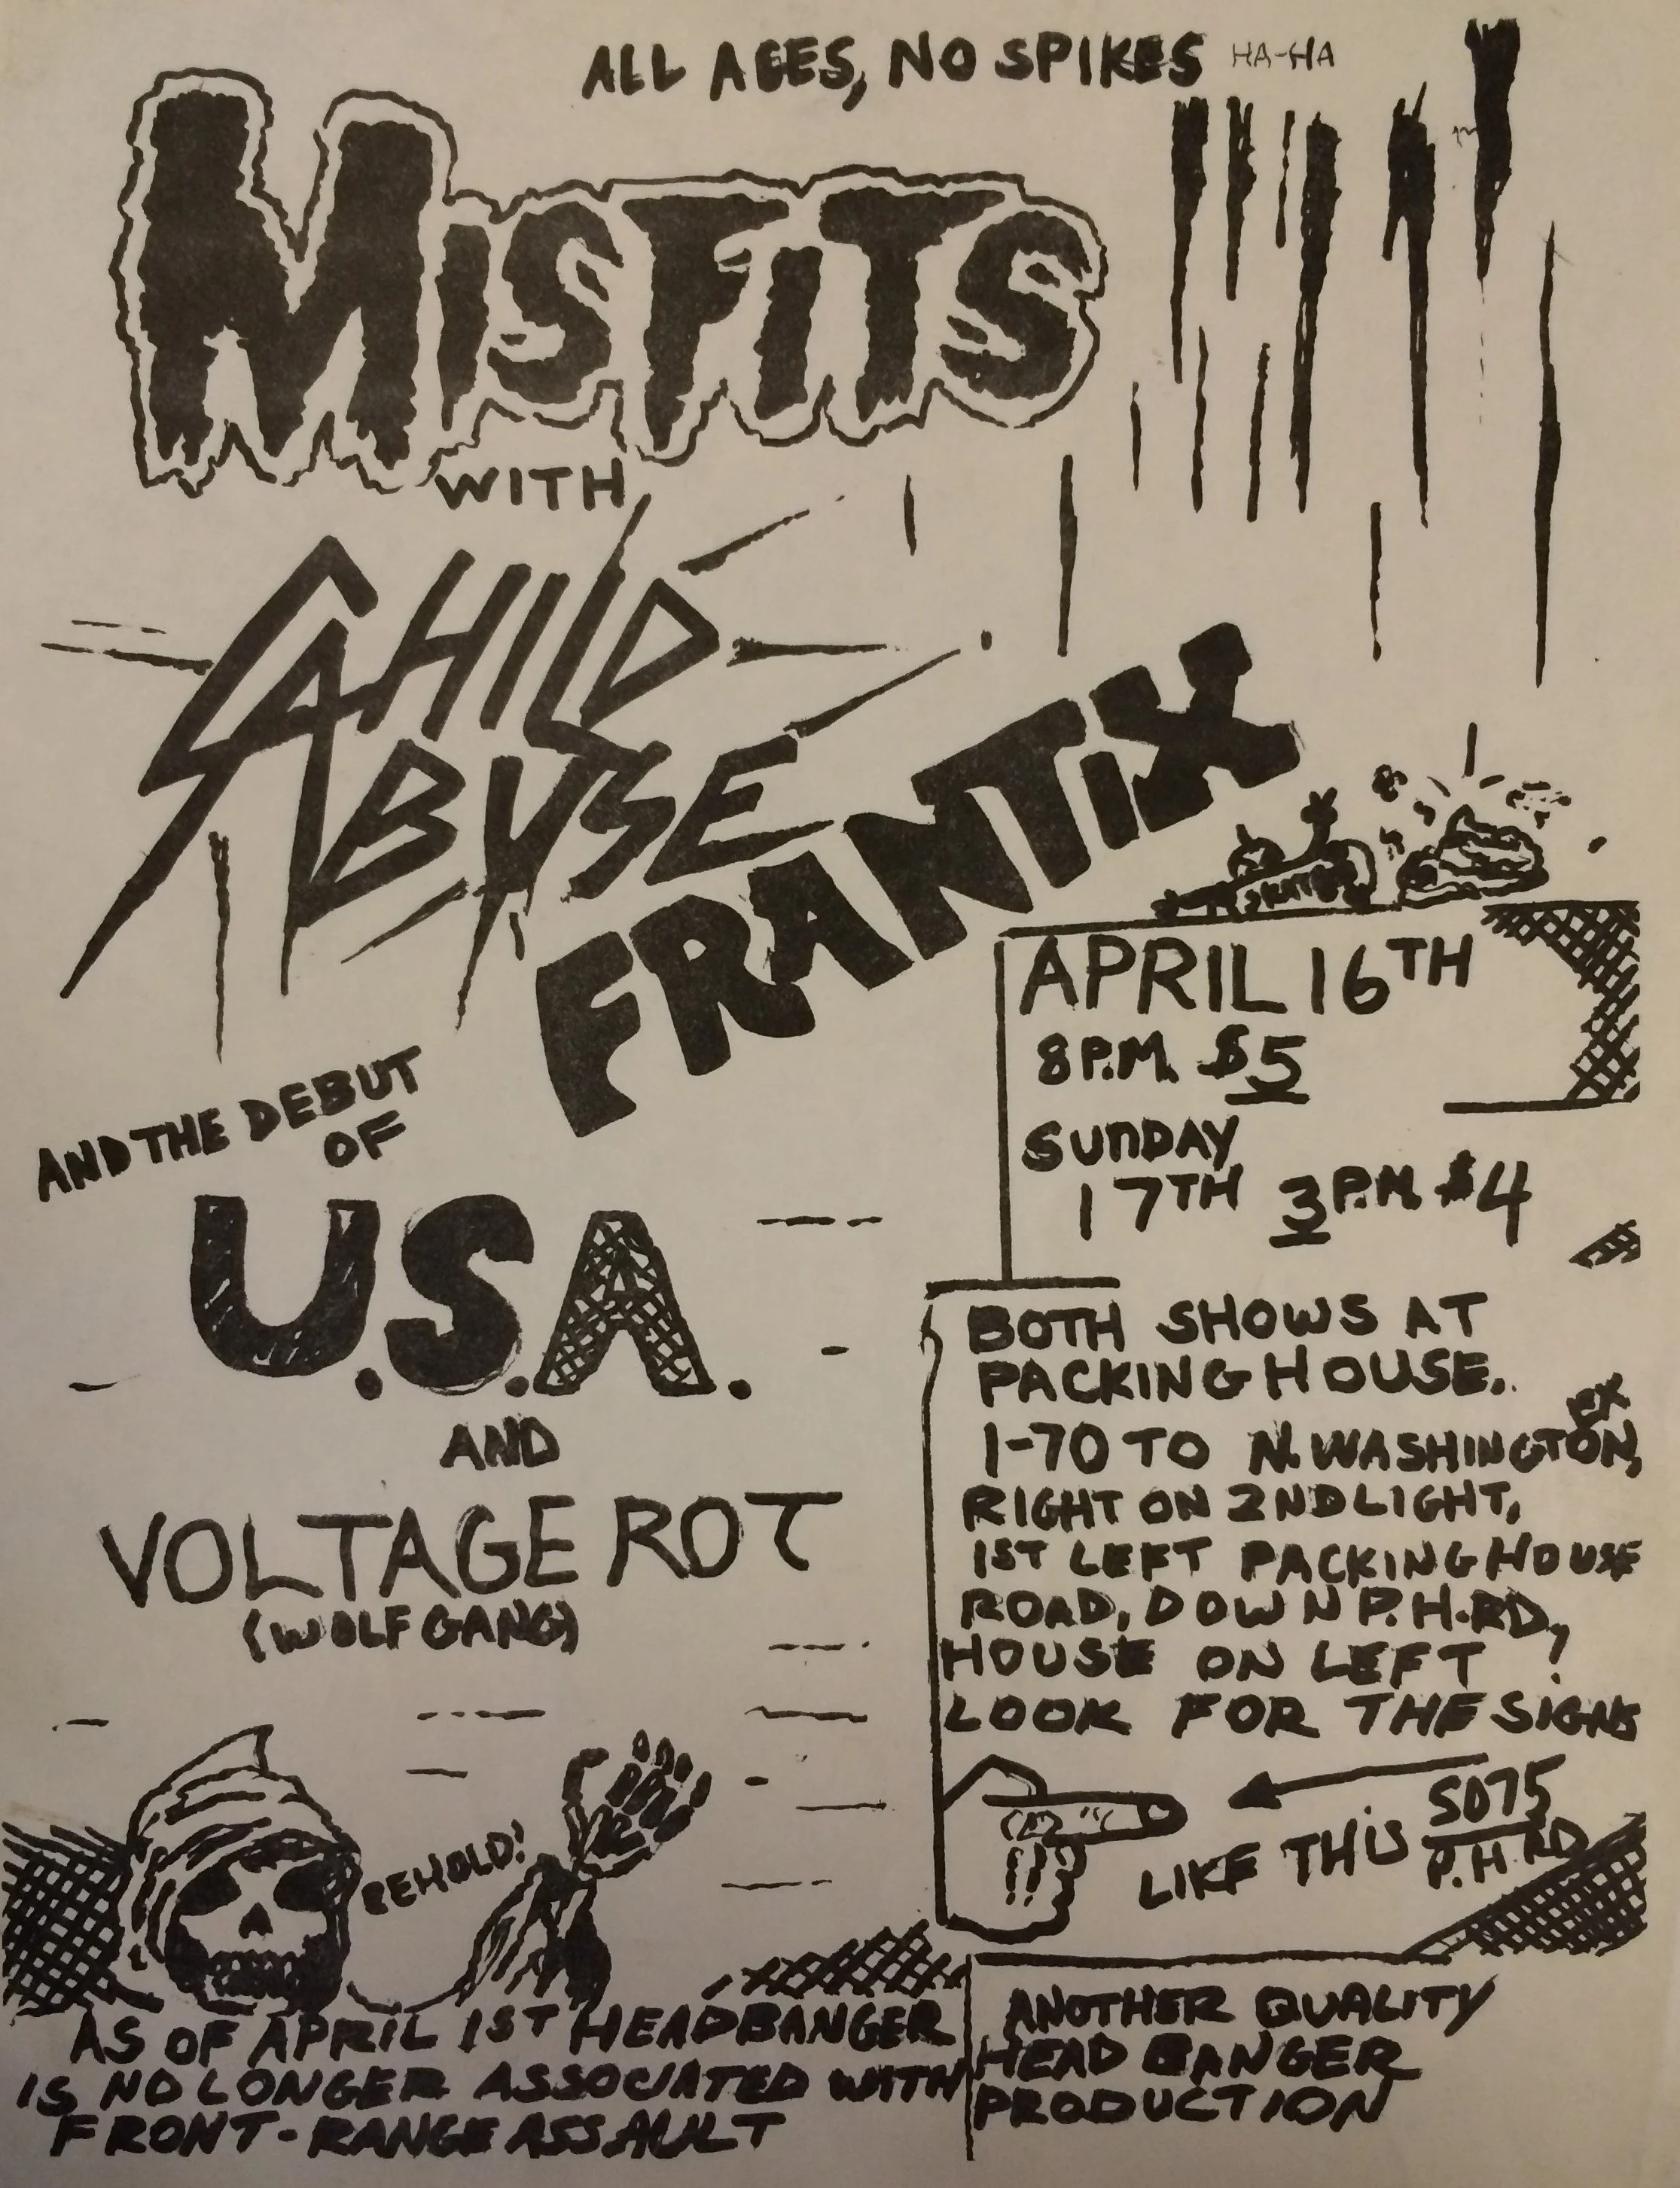 ALL AGES, NO SPIKES HA-HA
MISFITS
WITH
CHILD
ABUSE
FRANTIX
AND THE DEBUT
OF
U.S.A.
AND
VOLTAGE ROT
(WOLFGANG)
APRIL 16TH
8 P.M. $5
SUNDAY
17TH 3 P.M. $4
BOTH SHOWS AT
PACKING HOUSE.
I-70 TO N. WASHINGTON, EX
RIGHT ON 2ND LIGHT,
1ST LEFT PACKING HOUSE
ROAD, DOWN P.H. RD,
HOUSE ON LEFT !
LOOK FOR THE SIGNS
LIKE THIS
5075
P.H RD
BEHOLD!
AS OF APRIL 1ST HEADBANGER
IS NO LONGER ASSOCIATED WITH
FRONT-RANGE ASSAULT
ANOTHER QUALITY
HEAD BANGER
PRODUCTION